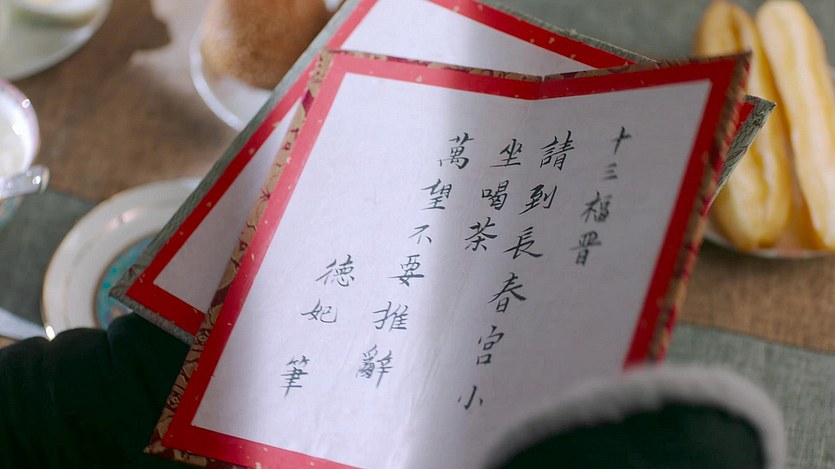 十三福晋
請到長春宮小
坐喝茶
萬望不要推辭
德妃筆